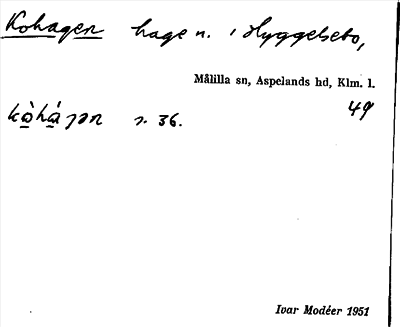 Kohagen hage n. i Hyggelsebo,
Målilla sn, Aspelands hd, Klm. l.
49
kò̱há̱ɡən s. 36.
Ivar Modéer 1951